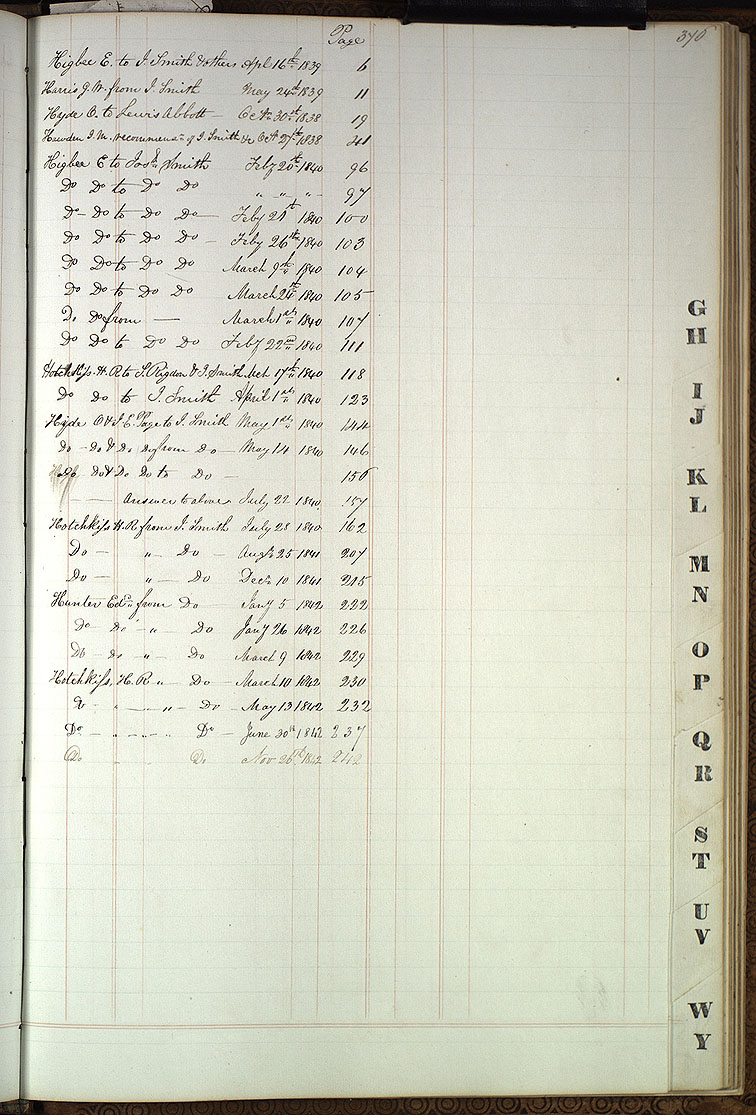 370
Page
Higbee E. to J. Smith & others Apl 16th 1839 6
Harris G. W. from J. Smith May 24th 1839 11
Hyde O. to Lewis Abbott — Oct 30th 1838 19
J. M. recommend of J. Smith &c Oct 27th 1838 41
Higbee E to Josh Smith Feby 20th 1840 96
Do Do to Do Do " " " 97
Do Do to Do Do — Feby 21st 1840 100
Do Do to Do Do — Feby 26th 1840 103
Do Do to Do Do March 9th 1840 104
Do Do to Do Do March 24th 1840 105
Do Do from — March 1st 1840 107
Do Do to Do Do Feby 22nd 1840 111
Hotchkiss. H. R to S. Rigdon & J. Smith Mch 17th 1840 118
Do Do to J. Smith April 1st 1840 123
Hyde O & J. E. Page to J. Smith May 1st 1840 144
Do - Do & Do Do from Do — May 14 1840 146
Do Do & Do Do to Do — 156
— Answer to above July 22 1840 157
Hotchkiss H. R from J. Smith July 28 1840 162
Do — " — Do — Augt 25 1841 207
Do — " — Do Decr 10 1841 215
Hunter Edwd from Do — Jany 5 1842 222
Do — Do " — Do Jany 26 1842 226
Do — Do — " — Do March 9 1842 229
Hotchkiss, H. R " — Do — March 10 1842 230
Do - " — " — Do — May 13 1842 232
Do - " - - - Do — June 30th 1842 237
Do - - Do Nov 26th 1842 242
G
H
I
J
K
L
M
N
O
P
Q
R
S
T
U
V
W
Y